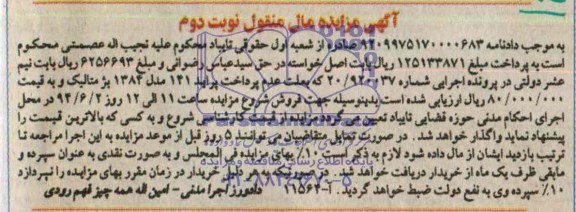 آگهی مزایده مال منقول نوبت دوم
به موجب دادنامه ۹۲۰۹۹۷۵۱۷۰۰۰۰۶۸۳ صادره از شعبه اول حقوقی تایباد محکوم علیه نجیب اله عصمتی محکوم
است به پرداخت مبلغ ۱۲۵۱۳۳۸۷۱ ریال بابت اصل خواسته در حق سیدعباس رضوانی و مبلغ ۶۲۵۶۶۹۳ ریال بابت نیم
عشر دولتی در پرونده اجرایی شماره ۲۰/۹۲۰۰۳۷ که بعلت عدم پرداخت پراید ۱۴۱ مدل ۱۳۸۴ بژ متالیک و به قیمت
۸۰/۰۰۰/۰۰۰ ریال ارزیابی شده است بدینوسیله جهت فروش شروع مزایده ساعت ۱۱ الی ۱۲ روز ۹۴/۶/۲ در محل
اجرای احکام مدنی حوزه قضایی تایباد تعیین می گردد مزایده از قیمت کارشناسی شروع و به کسی که بالاترین قیمت را
پیشنهاد نماید واگذار خواهد شد. در صورت تمایل متقاضیان می توانند ۵ روز قبل از موعد مزایده به این اجرا مراجعه تا
ترتیب بازدید ایشان از مال داده شود لازم به ذکر است ۱۰٪ بهای مزایده فی المجلس و به صورت نقدی به عنوان سپرده و
مابقی ظرف یک ماه از خریدار دریافت خواهد شد. در صورتیکه به هر دلیل خریدار در زمان مقرر بهای مزایده را نپردازد
۱۰٪ سپرده وی به نفع دولت ضبط خواهد گردید. آ-۱۱۵۶۴ دادورز اجرا مدنی - امین اله همه چیز فهم رودی